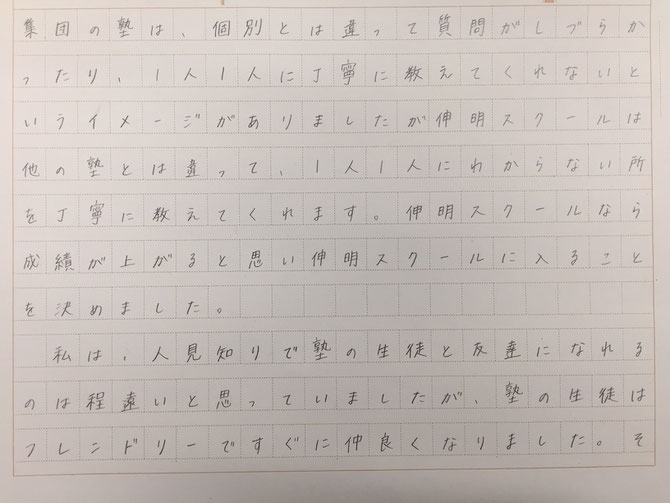 集団の塾は、個別とは違って質問がしづらか
ったり、1人1人に丁寧に教えてくれないと
いうイメージがありましたが伸明スクールは
他の塾とは違って、1人1人にわからない所
を丁寧に教えてくれます。伸明スクールなら
成績が上がると思い伸明スクールに入ること
を決めました。
私は、人見知りで塾の生徒と友達になれる
のは程遠いと思っていましたが、塾の生徒は
フレンドリーですぐに仲良くなりました。そ